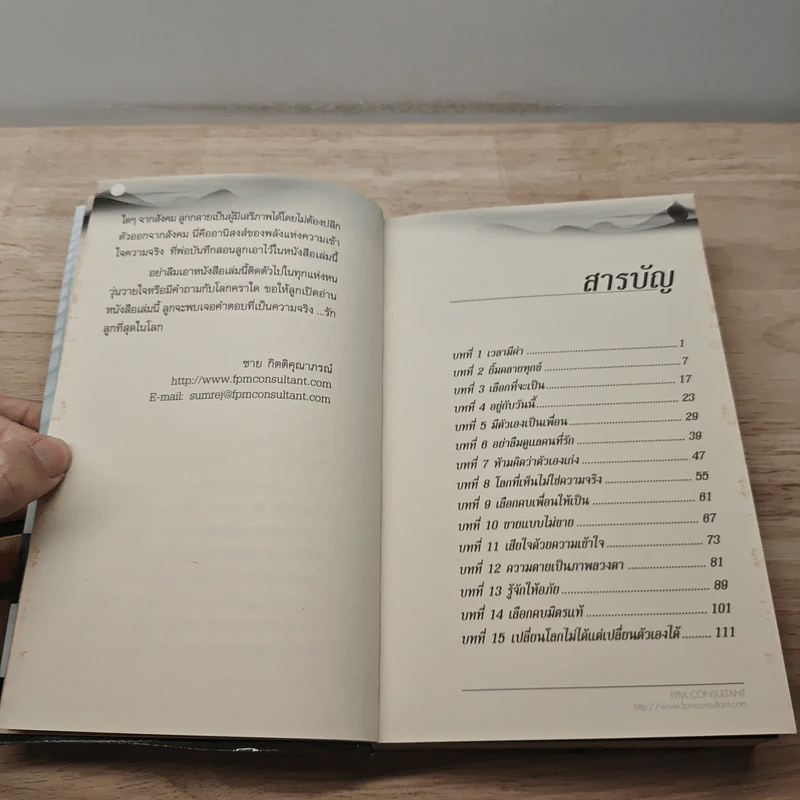 ใดๆ จากสังคม ลูกกลายเป็นผู้มีเสรีภาพได้โดยไม่ต้องปลีก
ตัวออกจากสังคม นี่คืออานิสงส์ของพลังแห่งความเข้า
ใจความจริง ที่พ่อบันทึกสอนลูกเอาไว้ในหนังสือเล่มนี้
อย่าลืมเอาหนังสือเล่มนี้ติดตัวไปในทุกแห่งหน
วุ่นวายใจหรือมีคำถามกับโลกคราใด ขอให้ลูกเปิดอ่าน
หนังสือเล่มนี้ ลูกจะพบเจอคำตอบที่เป็นความจริง ...รัก
ลูกที่สุดในโลก
ชาย กิตติคุณาภรณ์
http://www.fpmconsultant.com
E-mail: sumrej@fpmconsultant.com
สารบัญ
บทที่ 1 เวลามีค่า ........ 1
บทที่ 2 ยิ้มคลายทุกข์ ........ 7
บทที่ 3 เลือกที่จะเป็น ........ 17
บทที่ 4 อยู่กับวันนี้ ........ 23
บทที่ 5 มีตัวเองเป็นเพื่อน ........ 29
บทที่ 6 อย่าลืมดูแลคนที่รัก ........ 39
บทที่ 7 ห้ามคิดว่าตัวเองเก่ง ........ 47
บทที่ 8 โลกที่เห็นไม่ใช่ความจริง ........ 55
บทที่ 9 เลือกคบเพื่อนให้เป็น ........ 61
บทที่ 10 ขายแบบไม่ขาย ........ 67
บทที่ 11 เสียใจด้วยความเข้าใจ ........ 73
บทที่ 12 ความตายเป็นภาพลวงตา ........ 81
บทที่ 13 รู้จักให้อภัย ........ 89
บทที่ 14 เลือกคบมิตรแท้ ........ 101
บทที่ 15 เปลี่ยนโลกไม่ได้แต่เปลี่ยนตัวเองได้ ........ 111
FPM CONSULTANT
http://www.fpmconsultant.com